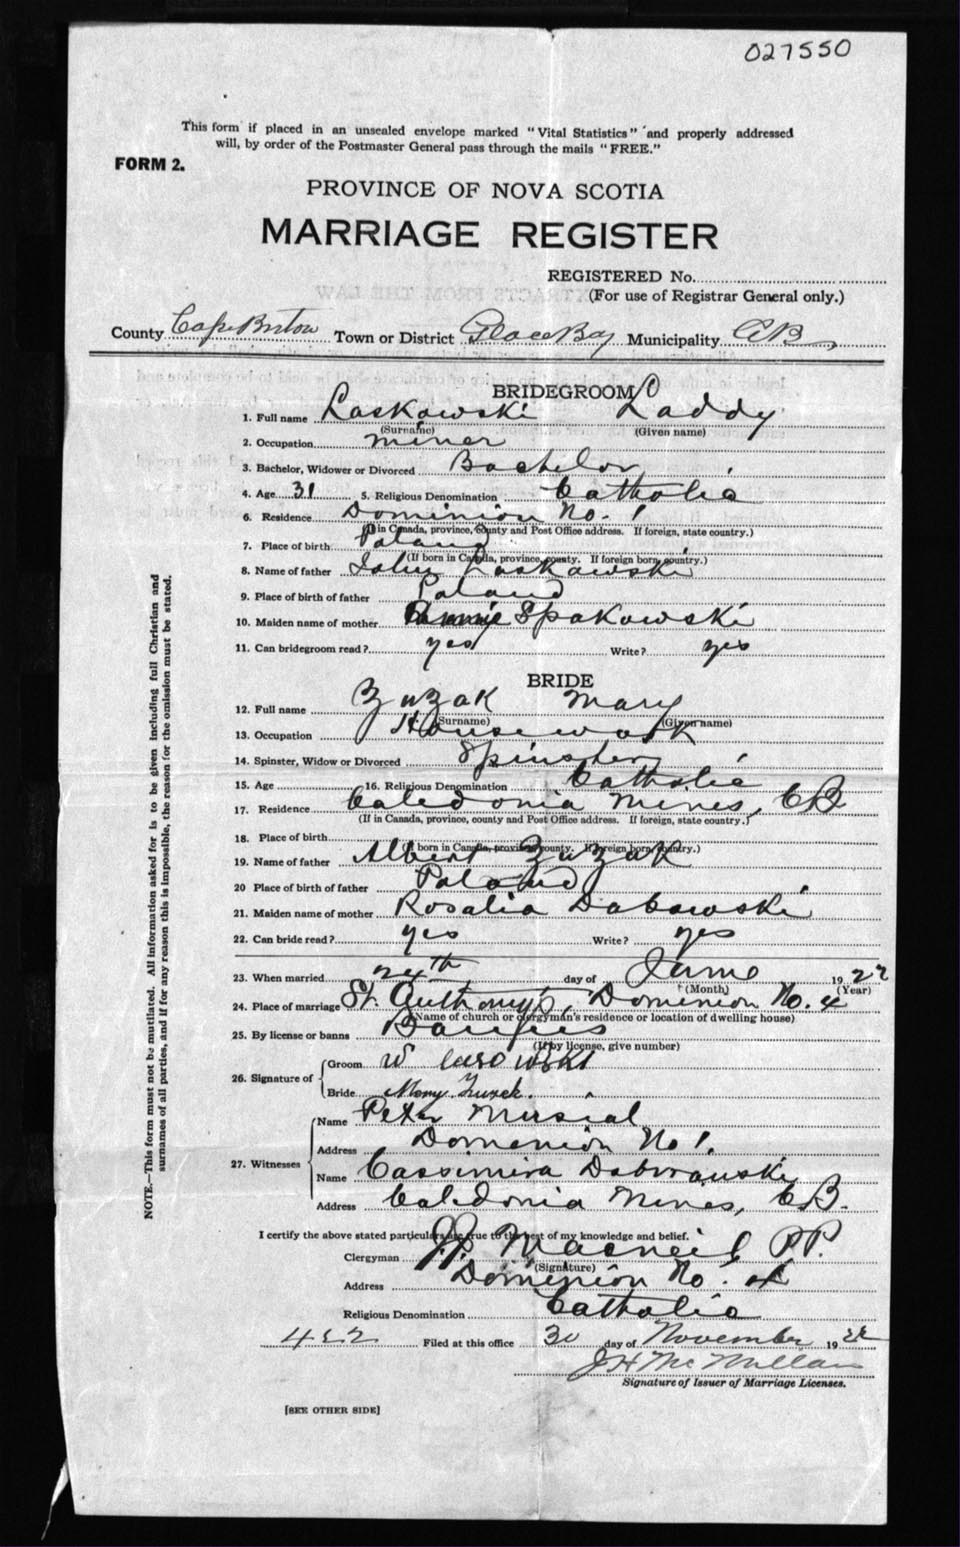 027550
This form if placed in an unsealed envelope marked "Vital Statistics" and properly addressed
will, by order of the Postmaster General pass through the mails "FREE."
FORM 2.
PROVINCE OF NOVA SCOTIA
MARRIAGE REGISTER
REGISTERED No.
(For use of Registrar General only.)
County Cape Breton Town or District Glace Bay Municipality CB
BRIDEGROOM
1. Full name Laskowski Laddy
(Surname) (Given name)
2. Occupation miner
3. Bachelor, Widower or Divorced Bachelor
4. Age 31 5. Religious Denomination Catholic
6. Residence Dominion No. 1
(If in Canada, province, county and Post Office address. If foreign, state country.)
7. Place of birth Poland
(If born in Canada, province, county. If foreign born, country.)
8. Name of father John Laskowski
9. Place of birth of father Poland
10. Maiden name of mother Annie Spakowski
11. Can bridegroom read? yes Write? yes
BRIDE
12. Full name Zuzak Mary
(Surname) (Given name)
13. Occupation Housework
14. Spinster, Widow or Divorced Spinster
15. Age 16. Religious Denomination Catholic
17. Residence Caledonia Mines, CB
(If in Canada, province, county and Post Office address. If foreign, state country.)
18. Place of birth
(If born in Canada, province, county. If foreign born, country.)
19. Name of father Albert Zuzak
20 Place of birth of father Poland
21. Maiden name of mother Rosalia Dabowski
22. Can bride read? yes Write? yes
23. When married 24th day of June 1922
(Month) (Year)
24. Place of marriage St. Anthony's, Dominion No. 4
(Name of church or clergyman's residence or location of dwelling house)
25. By license or banns Banns
(If by license, give number)
26. Signature of
Groom W
Bride Mary Zuzek.
27. Witnesses
Name Peter Musial
Address Dominion No 1.
Name Cassimira
Address Caledonia Mines, CB.
I certify the above stated particulars are true to the best of my knowledge and belief.
Clergyman J.J. Macneil P.P.
(Signature)
Address Dominion No. 4
Religious Denomination Catholic
452 Filed at this office 30 day of November 1922
J H McMillan
Signature of Issuer of Marriage Licenses.
[SEE OTHER SIDE]
NOTE.—This form must not be mutilated. All information asked for is to be given including full Christian and
surnames of all parties, and if for any reason this is impossible, the reason for the omission must be stated.